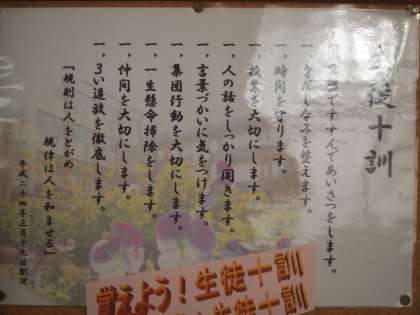 生徒十訓
すすんであいさつをします。
一、身だしなみを整えます。
一、時間を守ります。
一、授業を大切にします。
一、人の話をしっかり聞きます。
一、言葉づかいに気をつけます。
一、集団行動を大切にします。
一、一生懸命掃除をします。
一、仲間を大切にします。
一、3い追放を徹底します。
『規則は人をとがめ
規律は人を和ませる』
平成二十四年三月十九日制定
覚えよう!生徒十訓
生徒十訓